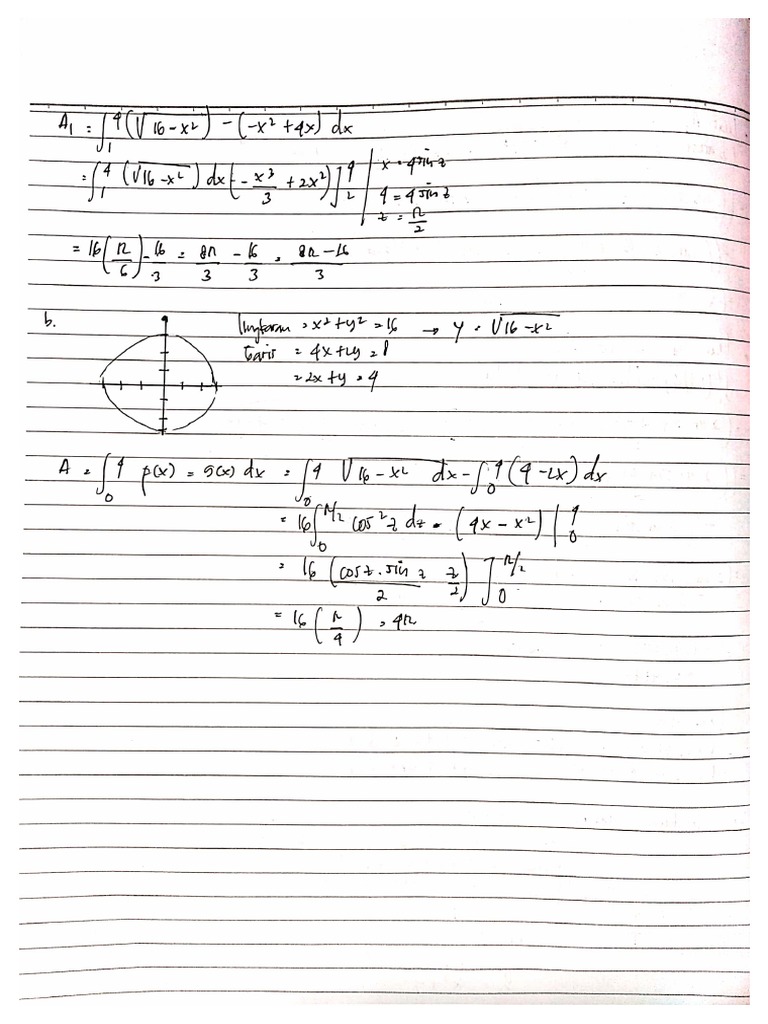 A₁ = ∫₁⁴ (√16-x²) - (-x² + 4x) dx
= ∫₁⁴ (√16-x²) dx (- x³/3 + 2x²) ]₂⁴ | x = 4 sin z
4 = 4 sin z
z = π/2
= 16 (π/6) - 16/3 = 8π/3 - 16/3 = 8π-16/3
b.
lingkaran = x² + y² = 16 → y = √16-x²
Garis = 4x + 2y = 8
= 2x + y = 4
A = ∫₀⁴ p(x) = g(x) dx = ∫₀⁴ √16-x² dx - ∫₀⁴ (4-2x) dx
= 16 ∫₀^π/2 cos² z dz - (4x - x²) |₀⁴
= 16 (cos z . sin z/2 z/2) ]₀^π/2
= 16 (π/4) = 4π